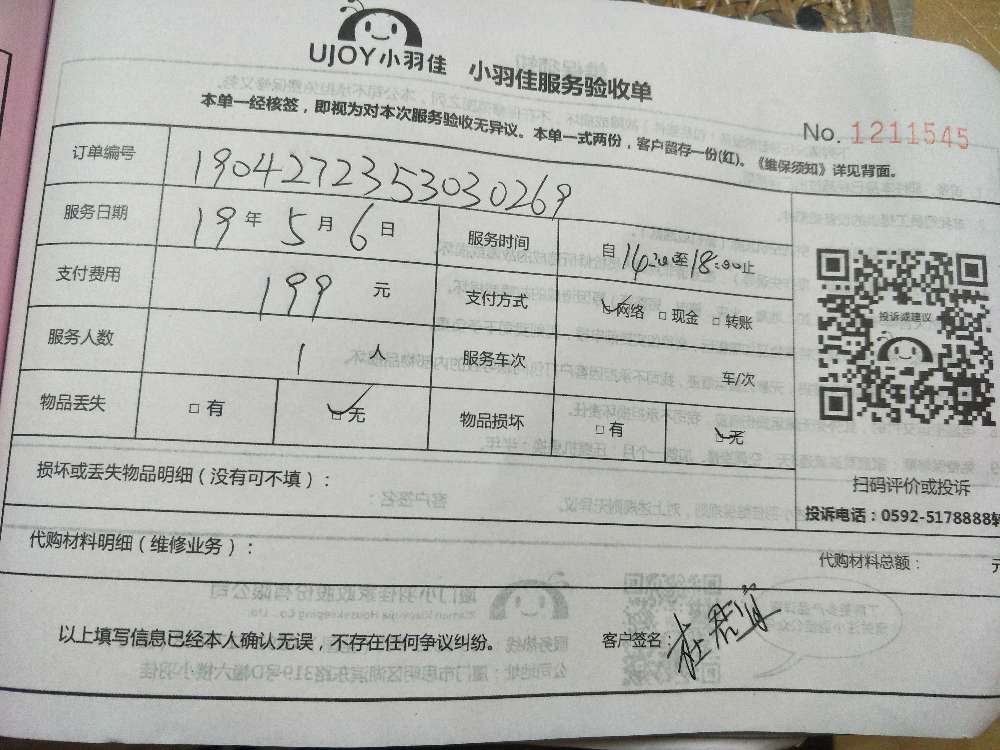 UJOY小羽佳 小羽佳服务验收单
本单一经核签，即视为对本次服务验收无异议。本单一式两份，客户留存一份(红)。《维保须知》详见背面。
No. 1211545
订单编号 1904272353030269
服务日期 19 年 5 月 6 日 服务时间 自 14:20 至 18:00 止
支付费用 199 元 支付方式 ☑网络 □现金 □转账
服务人数 1 人 服务车次 车/次
物品丢失 □有 ☑无 物品损坏 □有 ☑无
投诉或建议
损坏或丢失物品明细（没有可不填）：
扫码评价或投诉
投诉电话：0592-5178888转
代购材料明细（维修业务）：
代购材料总额： 元
以上填写信息已经本人确认无误，不存在任何争议纠纷。 客户签名：